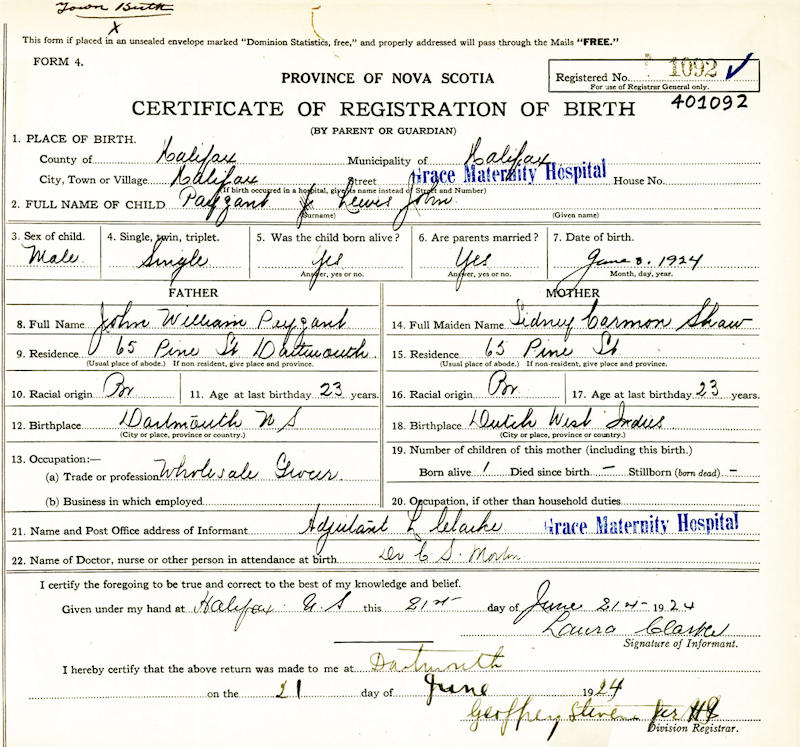 Town Birth
X
This form if placed in an unsealed envelope marked "Dominion Statistics, free," and properly addressed will pass through the Mails "FREE."
FORM 4.
Registered No. 1092 ✓
For use of Registrar General only.
401092
PROVINCE OF NOVA SCOTIA
CERTIFICATE OF REGISTRATION OF BIRTH
(BY PARENT OR GUARDIAN)
1. PLACE OF BIRTH.
County of Halifax Municipality of Halifax
City, Town or Village Halifax Street Grace Maternity Hospital House No.
(If birth occurred in a hospital, give its name instead of Street and Number)
2. FULL NAME OF CHILD Payzant Lewis John
(Surname) (Given name)
3. Sex of child. 4. Single, twin, triplet. 5. Was the child born alive? 6. Are parents married? 7. Date of birth.
Male Single Yes Yes June 8. 1924
Answer, yes or no. Answer, yes or no. Month, day, year.
FATHER
8. Full Name John William Peyzant
9. Residence 65 Pine St Dartmouth
(Usual place of abode.) If non-resident, give place and province.
10. Racial origin Br 11. Age at last birthday 23 years.
12. Birthplace Dartmouth N S
(City or place, province or country.)
13. Occupation:—
(a) Trade or profession Wholesale Grocer
(b) Business in which employed
MOTHER
14. Full Maiden Name Sidney Carmon Shaw
15. Residence 65 Pine St
(Usual place of abode.) If non-resident, give place and province.
16. Racial origin Br 17. Age at last birthday 23 years.
18. Birthplace Dutch West Indies
(City or place, province or country.)
19. Number of children of this mother (including this birth.)
Born alive 1 Died since birth – Stillborn (born dead) –
20. Occupation, if other than household duties
21. Name and Post Office address of Informant Adjutant L Clarke Grace Maternity Hospital
22. Name of Doctor, nurse or other person in attendance at birth Dr C S Morton
I certify the foregoing to be true and correct to the best of my knowledge and belief.
Given under my hand at Halifax N S this 21st day of June 21st 1924
Laura Clarke
Signature of Informant.
I hereby certify that the above return was made to me at Dartmouth
on the 21 day of June 1924
Geoffrey Steven
Division Registrar.